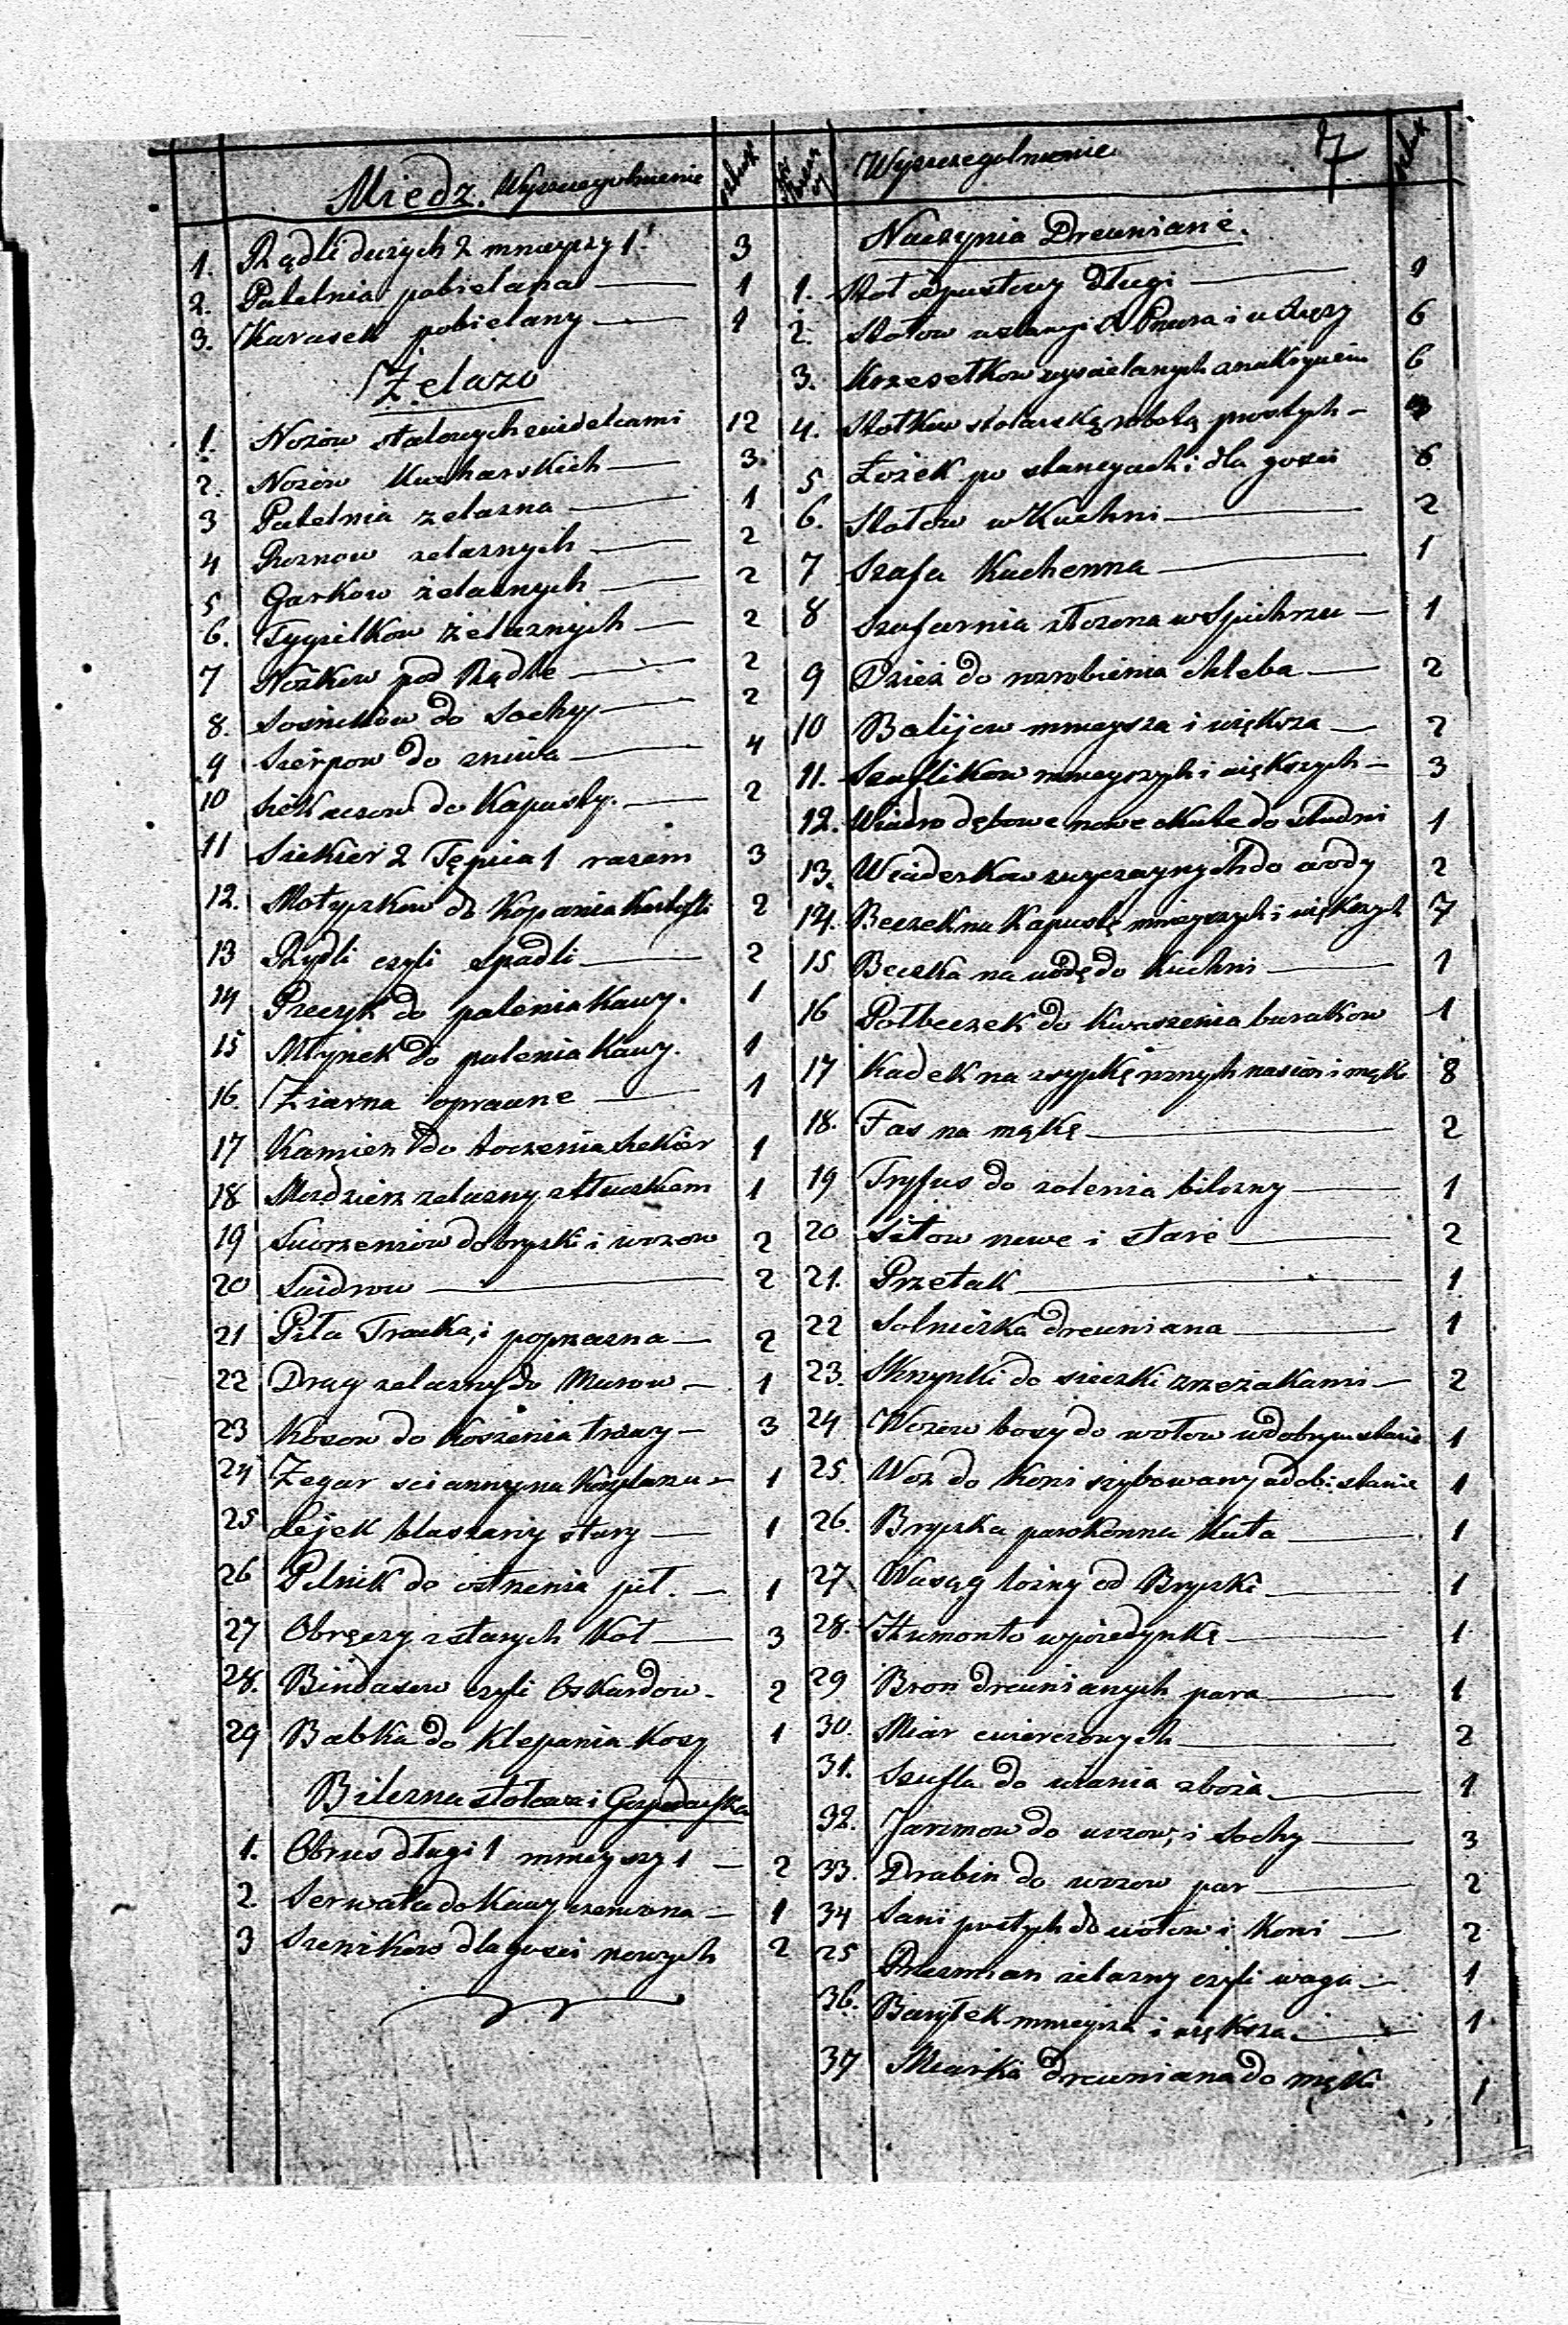 Miedz. Wyszczegolnienie sztuk
1. Rądli dużych 2 mnieyszy 1. 3
2. Patelnia pobielana — 1
3. Karasek pobielany — 1
Żelazo
1. Nożów stalowych z widelcami 12
2. Nożów Kucharskich — 3
3 Patelnia zelazna — 1
4 Rożnow zelaznych — 2
5 Garkow żelaznych — 2
6. Tygielkow żelaznych — 2
7 Nóżkow pod Rądle — 2
8. Sośnikòw do Sochy — 2
9 Sierpow do zniwa — 4
10 Siekaczow do Kapusty. — 2
11 Siekier 2 Tępica 1 razem 3
12. Motyczkow do Kopania Kartofli 2
13 Rydli czyli Spadli — 2
14 Piecyk do palenia Kawy. 1
15 Młynek do palenia Kawy. 1
16. Żiarna oprawne — 1
17 Kamien do toczenia Siekier 1
18 Mozdzierz zelazny z tłuczkiem 1
19 Sworzeniow do bryczki i wozow 2
20 Swidrow — 2
21 Piła Tracka, i poprzeczna — 2
22 Drąg zelazny do Murow — 1
23 Kosow do Koszenia trawy — 3
24 Zegar scienny na — 1
25 Lejek blaszany stary — 1
26 Pilnik do ostrzenia pił. — 1
27 Obręczy z starych Kół — 3
28. Bindasow czyli Oskardow — 2
29 Babka do Klepania Kosy 1
Bilizna stołowa i Gospodarska
1. Obrus długi 1 mnieyszy 1 — 2
2. Serwata do Kawy czerwona — 1
3 Siennikow dla gosci nowych 2
Wyszczegolnienie 7 sztuk
Naczynia Drewniane.
1. Stoł odpustowy Długi — 1
2. Stołow w stancyi X Proboszcza i u Xięży 6
3. Krzesełkow wyscielanych 6
4. Stołkow stolarską robotą prostych —
5 Łożek po stancyach i dla gosci 6
6. Stołow w Kuchni — 2
7 Szafa Kuchenna — 1
8 Szafarnia złożona w Spichrzu — 1
9 Dzież do rozrobienia chleba — 2
10 Balijow mnieysza i większa — 2
11. Szaflikow mnieyszych i większych — 3
12. Wiadro dębowe nowe okute do studni 1
13. Wiaderkow zwyczaynych do wody 2
14. Beczek na Kapustę mnieyszych i większych 7
15 Beczka na wodę do Kuchni — 1
16 Połbeczek do Kwaszenia burakow 1
17 Kadek na zsypkę roznych nasion i mąki 8
18. Fas na mąkę — 2
19 Tryfus do zolenia bilizny — 1
20 Sitow nowe i stare — 2
21. Przetak — 1
22 Solniczka drewniana — 1
23. Skrzynki do sieczki z rzezakami — 2
24 Wozow bosy do wołow w dobrym stanie 1
25. Woz do Koni szybowany w dob: stanie 1
26. Bryczka parokonna Kuta — 1
27 Wasąg lożny od Bryczki — 1
28. Humonto w pojedynkę — 1
29 Bron drewnianych para — 1
30. Miar cwierciowych — 2
31. Szufla do wiania zboża — 1
32. Jarzmow do wozow, i Sochy — 3
33. Drabin do wozow par — 2
34 Sani prostych do wołow i Koni — 2
25 Bezmian żelazny czyli waga — 1
36. Baryłek mnieysza i większa. — 1
37 Miarka drewniana do mąki 1